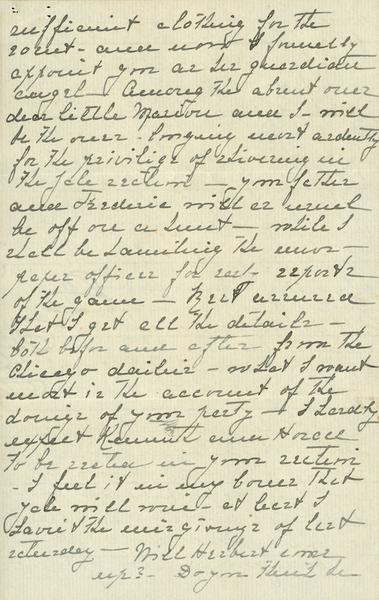 sufficient clothing for the
east - and now I formally
appoint you as her guardian
angel - Among the absent ones
dear little Marion and I - will
be the ones longing most ardently
for the privilige of shivering in
the Yale section - your father
and Frederic will as usual
be off on a hunt - while I
shall be haunting the news-
paper offices for rest - reports
of the game - Rest assured
that I get all the details -
both before and after from the
Chicago dailies - what I want
most is the account of the
doings of your party - I hardly
expect Kenneth and Horace
to be seated in your section
- I feel it in my bones that
Yale will win - at least I
haven't the misgivings of last
Saturday - Will Herbert come
up? - Do you think he